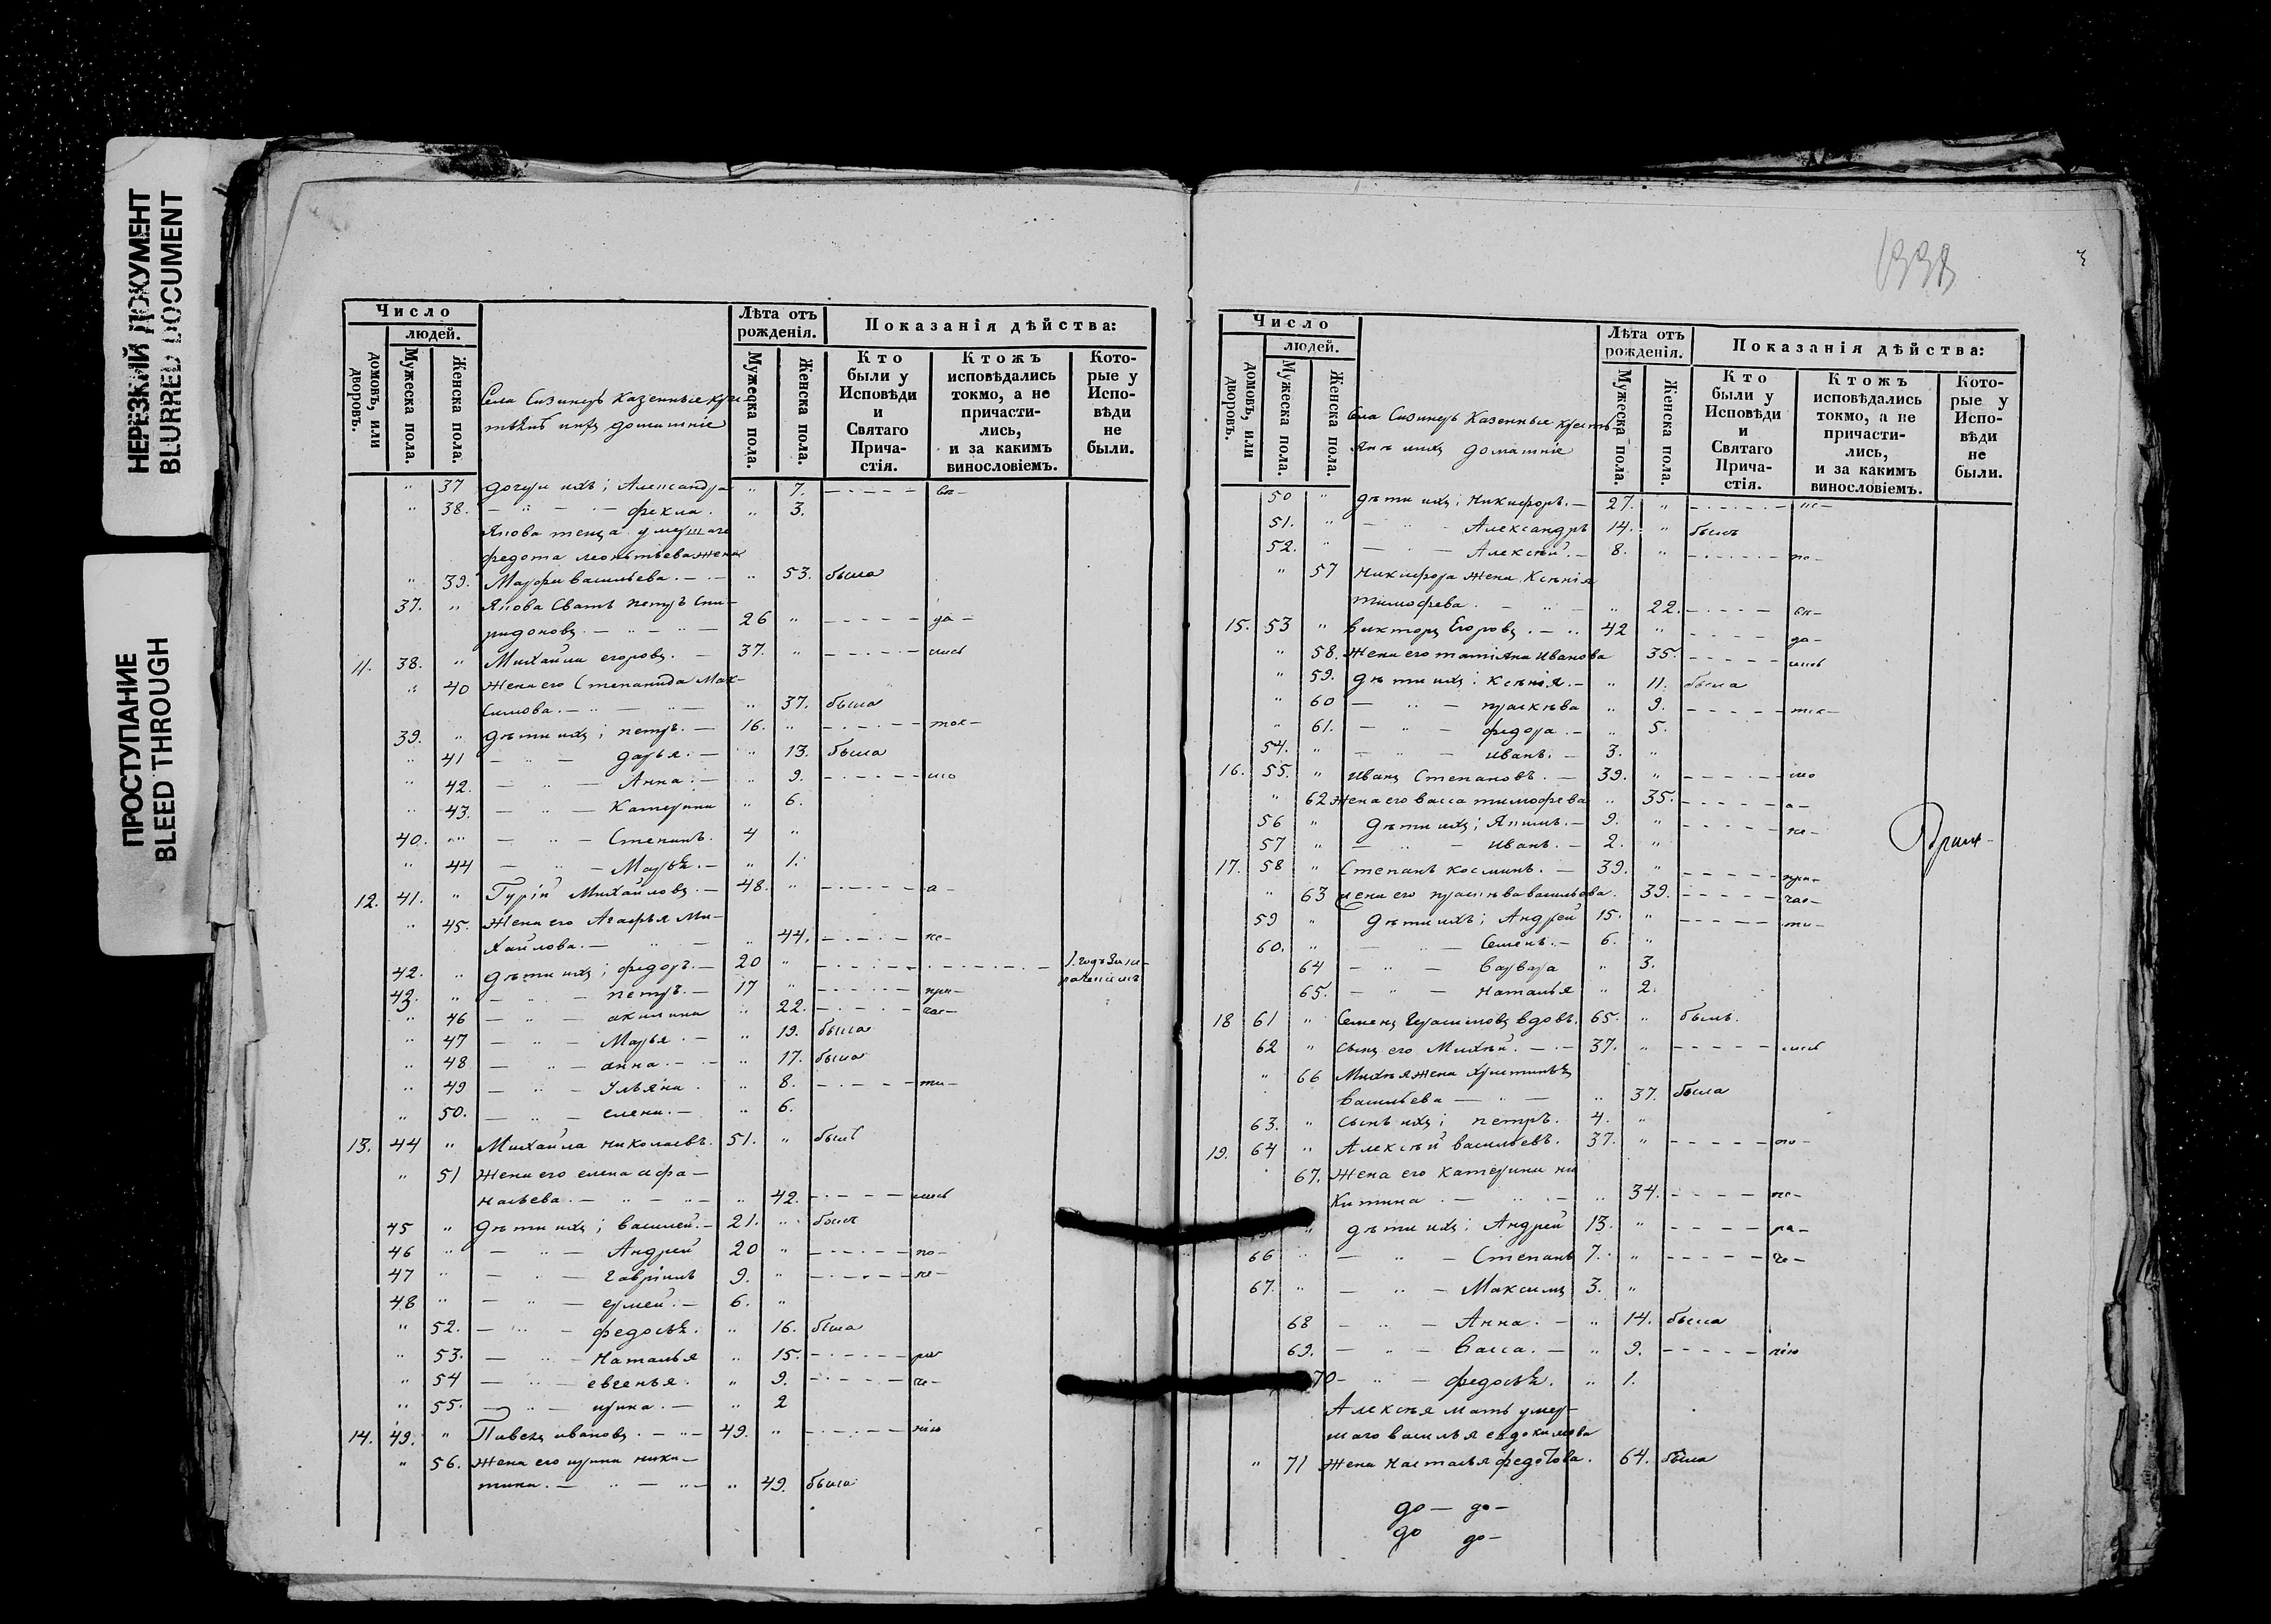 НЕРЕЗКИЙ ДОКУМЕНТ
BLURRED DOCUMENT
ПРОСТУПАНИЕ
BLEED THROUGH
Число
людей.
домовъ, или дворовъ.
Мужеска пола.
Женска пола.
Села Сизинцъ Казенные кре-
домашніе
Лѣта отъ рожденія.
Мужеска пола.
Женска пола.
Показанія дѣйства:
Кто были у Исповѣди и Святаго Прича-стія.
Ктожъ исповѣдались токмо, а не причасти-лись, и за какимъ винословіемъ.
Кото-рые у Испо-вѣди не были.
" 37 дочери ихъ; Александра " 7. — — — вн-
" 38. — " — фекла. " 3.
Якова теща умершаго
федота леонтьева жена
" 39. Марфа васильева. — " 53. была
37. " Якова Сватъ петръ Спи-
ридоновъ. — " — 26 " — — — до-
11. 38. " Михайла егоровъ. — 37. " — — — лись
" 40 Жена его Степанида Мак-
симова. — " — " 37. была
39. " дѣти ихъ; петръ. — 16. " — — — ток-
" 41 — " — дарья. — " 13. была
" 42. — " — Анна. — " 9. — — — мо
" 43. — " — Катерина " 6.
40. " — " — Степанъ. 4 "
" 44 — " — Марья. — " 1.
12. 41. " Гурій Михайловъ. — 48. " — — — а-
" 45. Жена его Агафья Ми-
хайлова. — " — " 44. — — — не-
42. " дѣти ихъ; федоръ. — 20 " — — — 1. годъ
43. " — " — петръ. — 17 " — — — при-
" 46 — " — акилина " 22. — — — час-
" 47 — " — Марья. — " 19. была
" 48 — " — анна. — " 17. была
" 49 — " — Ульяна. " 8. — — — ти-
" 50. — " — елена. — " 6.
13. 44 " Михайла николаевъ. 51. " былъ
" 51 Жена его елена афа-
насьева. — " — " 42. — — — лись
45 " дѣти ихъ; василей. — 21. " былъ
46 " — " — Андрей 20 " — — — по-
47 " — " — гаврилъ 9. " — — — не-
48 " — " — ермей. — 6. "
" 52. — " — федосья. " 16. была
" 53. — " — Наталья " 15. — — — ра-
" 54 — " — евгенья. " 9. — — — че-
" 55. — " — ирина. — " 2
14. 49. " Павелъ ивановъ. — " — 49. " — — — нію
" 56. Жена его ирина ники-
тина. — " — " 49. была
3
Число
людей.
домовъ, или дворовъ.
Мужеска пола.
Женска пола.
Села Сизинцъ Казенные кресть-
яне ихъ домашніе
Лѣта отъ рожденія.
Мужеска пола.
Женска пола.
Показанія дѣйства:
Кто были у Исповѣди и Святаго Прича-стія.
Ктожъ исповѣдались токмо, а не причасти-лись, и за какимъ винословіемъ.
Кото-рые у Испо-вѣди не были.
50 " дѣти ихъ; Никифоръ. — 27. " — — —
51. " — " — Александръ 14. " былъ
52. " — " — Алексѣй. — 8. " — — — по-
" 57 Никифора жена Ксѣнія
тимофева. — " — " 22. — — — вн-
15. 53 " викторъ Егоровъ. — " 42 " — — — до-
" 58. Жена его татіяна Иванова 35. — — — лись
" 59. дѣти ихъ; Ксѣнія. — " 11. была
" 60 — " — праскѣва " 9. — — — ток-
" 61. — " — федора. — " 5.
54. " — " — иванъ. — 3. "
16. 55. " Иванъ Степановъ. — 39. " — — — мо
" 62 Жена его васса тимофева " 35. — — — а-
56 " дѣти ихъ; Якимъ. — 9. " — — — не-
57 " — " — иванъ. — 2. "
17. 58 " Степанъ косминъ. — 39. " — — — при-
" 63 жена его праскѣва васильева. 39. — — — час-
59 " дѣти ихъ; Андрей 15. " — — — ти-
60. " — " — Семенъ. — 6. "
64 — " — варвара " 3.
65. — " — Наталья " 2.
18 61 " Семенъ Герасимовъ вдовъ. 65. " былъ.
62 " Сынъ его Михѣй. — 37. " — — — лись
" 66 Михѣя жена Христинья
васильева — " — " 37. была
63. " Сынъ ихъ; петръ. 4. "
19. 64 " Алексѣй васильевъ. 37. " — — — по-
67. Жена его Катерина ни
китина. — " — " 34. — — — не-
" дѣти ихъ; Андрей 13. " — — — ра-
66 " — " — Степанъ 7. " — — — че-
67. " — " — Максимъ 3. "
68 — " — Анна. — " 14. была
69. — " — васса. — " 9. — — — нію
70 — " — федосья. " 1.
Алексѣя мать умер-
шаго василья евдокимова
" 71 жена Настасья федотова. 64. была
до — до —
до до —